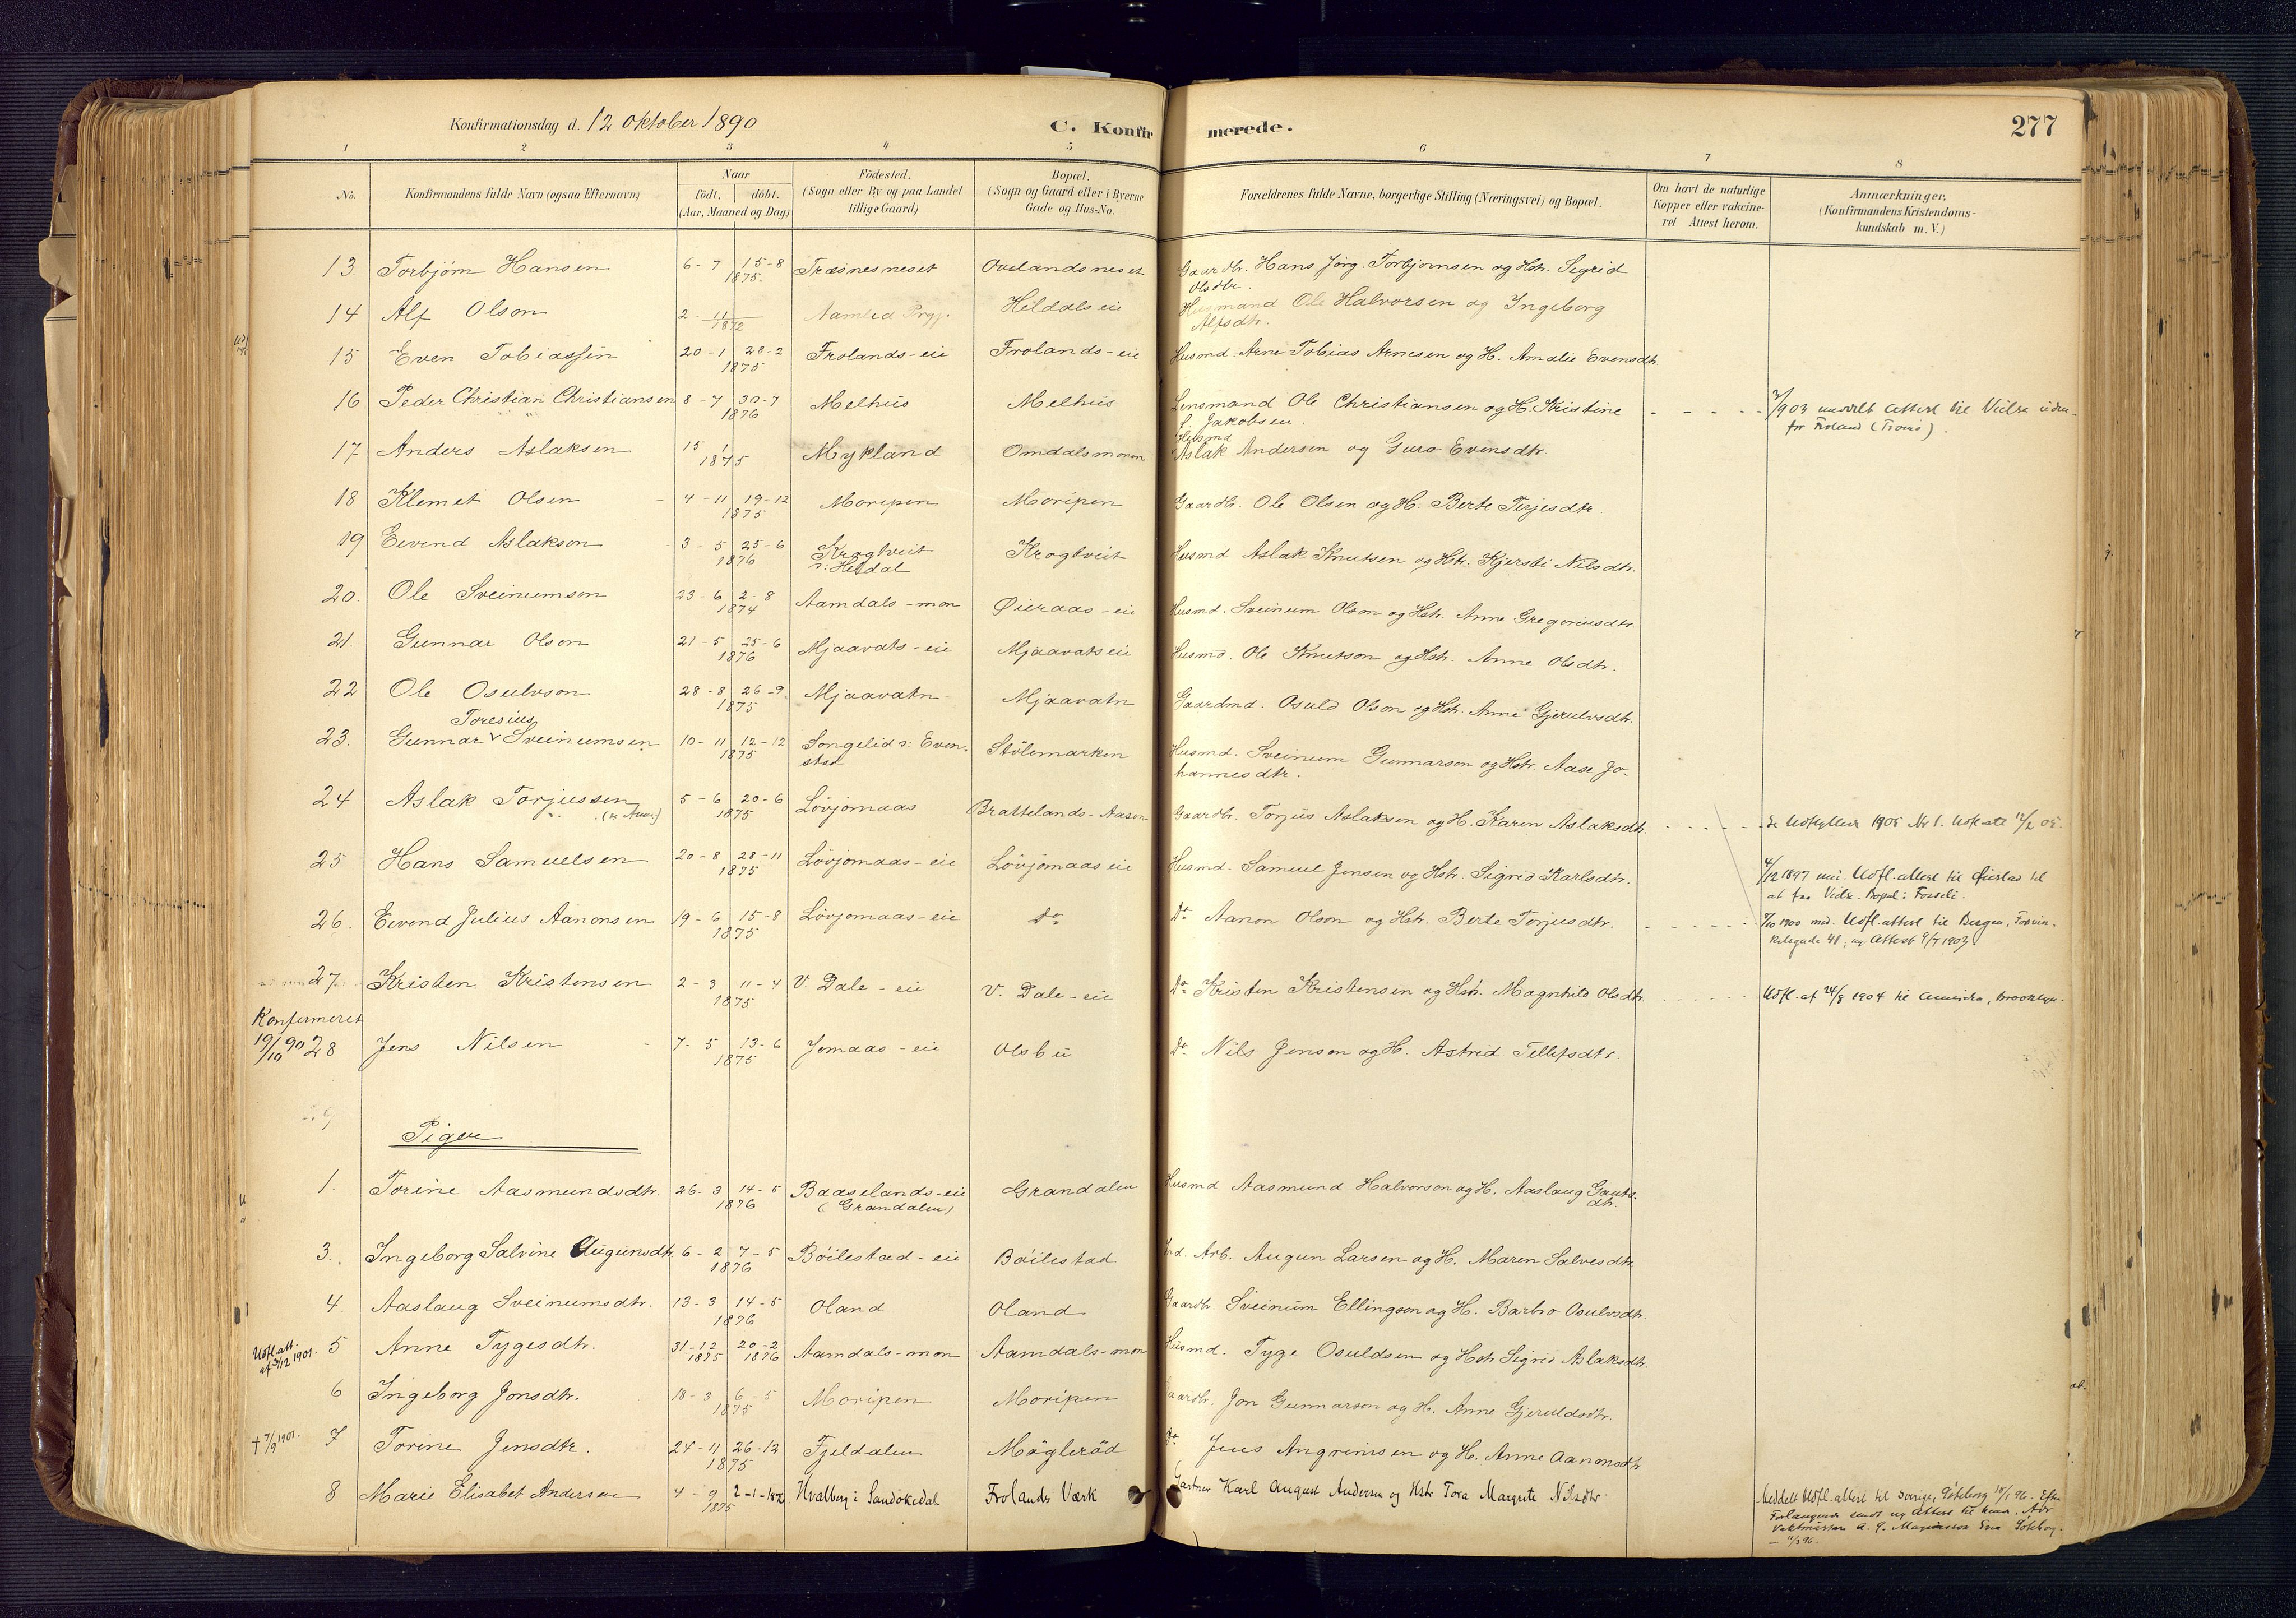 Konfirmationsdag d. 12 oktober 1890
C. Konfirmerede.
277
1 2 3 4 5 6 7 8
No.
Konfirmandens fulde Navn (ogsaa Efternavn)
Naar
födt. döbt.
(Aar, Maaned og Dag)
Födested.
(Sogn eller By og paa Landet
tillige Gaard)
Bopæl.
(Sogn og Gaard eller i Byerne
Gade og Hus-No.
Forældrenes fulde Navne, borgerlige Stilling (Næringsvei) og Bopæl.
Om havt de naturlige
Kopper eller vakcine-
ret Attest herom.
Anmærkninger.
(Konfirmandens Kristendoms-
kundskab m. V.)
13. Torbjørn Hansen 6-7 15-8 1875. Træsnesneset Ovelandsneset Gaardbr. Hans Jörg. Torbjørnsen og Hstr. Sigrid
Olsdtr.
14 Alf Olson 2-11 1872 Aamlid Prgj. Hildals eie Husmand Ole Halvorsen og Ingeborg
Alfsdtr.
15 Even Tobiassen 20-1 28-2 1875 Frolands-eie Frolands-eie Husmd. Arne Tobias Arnesen og H. Amalie Evensdtr.
16 Peder Christian Christiansen 8-7 30-7 1876 Melhus Melhus Lensmand Ole Christiansen og H. Kristine
f. Jakobsen.
/903 meddelt Attest til Vielse uden-
for Froland (Tromö).
17 Anders Aslaksen 15 1 1875 Mykland Omdalsmoen Husmd
Aslak Andersen og Guro Evensdtr.
18 Klemet Olsen 4-11 19-12 1875 Moripen Moripen Gaardbr. Ole Olsen og H. Berte Terjesdtr.
19 Eivend Aslakson 3-5 25-6 1876 Krogtveit
v: Heldal Krogtveit Husmd Aslak Knutsen og Hstr. Kjersti Nilsdtr.
20. Ole Sveinumson 23-6 2-8 1874 Aamdals-mon Øieraas-eie Husmd. Sveinum Olson og Hstr. Anne Gregoriusdtr.
21. Gunnar Olson 21-5 25-6 1876 Mjaavats-eie Mjaavats eie Husmd. Ole Knutson og Hstr. Anne Olsdtr.
22 Ole Osulvson 28-8 26-9 1875 Mjaavatn Mjaavatn Gaardmd. Osuld Olson og Hstr. Anne Gjerulvsdtr.
Toresius
23. Gunnar Sveinumsen 10-11 12-12 1875 Songelid v: Even-
stad Stölemarken Husmd. Sveinum Gunnarson og Hstr. Aase Jo-
hannesdtr.
24 Aslak Torjussen 5-6 20-6 1875 Lövjomaas Brattelands-Aasen Gaardbr. Torjus Aslaksen og H. Karen Aslaksdtr. Se Udflyttede 1905 Nr 1. Udfl. att 12/2 05.
25 Hans Samuelsen 20-8 28-11 1875 Lövjomaas-eie Lövjomaas eie Husmd. Samuel Jensen og Hstr. Sigrid Karlsdtr. 4/12 1897 Udfl. attest til Öiestad til
at faa Vielse. Bopæl: Fosseli.
26. Eivend Julius Aanonsen 19-6 15-8 1875 Lövjomaas-eie Do Do Aanon Olson og Hstr. Berte Torjusdtr. /10 1900 med. Udfl. attest til Bergen,
gade 41, ny Attest 9/7 1903
27. Kristen Kristensen 2-3 11-4 1875 V. Dale-eie V. Dale-eie Do Kristen Kristensen og Hstr. Magnhild Olsdtr. Udfl. af 24/8 1904 til Amerika, Brooklyn.
Konfirmeret
19/10 90 28 Jens Nilsen 7-5 13-6 1875 Jomaas-eie Olsbu Do Nils Jenson og H. Astrid Tellefsdtr.
29
Piger
1. Torine Aasmundsdtr. 26-3 14-5 1876 Baaselands-eie
(Grandalen) Grandalen Husmd Aasmund Halvorson og H. Aaslaug Gauts-
dtr.
3. Ingeborg Salvine Augunsdtr 6-2 7-5 1876 Böilestad-eie Böilestad Ind. Arb. Augun Larsen og H. Maren Salvesdtr.
4. Aaslaug Sveinumsdtr. 13-3 14-5 1876 Oland Oland Gaardbr. Sveinum Ellingson og H. Barbro Osulvsdtr.
Udfl. att.
af /12 1901. 5 Anne Tygesdtr. 31-12 1875 20-2 1876 Aamdals-mon Aamdals-mon Husmd. Tyge Osuldsen og Hstr Sigrid Aslaksdtr.
6 Ingeborg Jonsdtr. 18-3 6-5 1875 Moripen Moripen Gaardbr. Jon Gunnarson og H. Anne Gjeruldsdtr.
† 7/9 1901. 7 Torine Jensdtr. 24-11 26-12 1875 Fjeldalen Möglerød Do Jens Angrimsen og H. Anne Aanonsdtr
8 Marie Elisabet Andersen 4-9 1875 2-1-1876 Hvalberg i Sandökedal Frolands Værk Gartner Karl August Andersen og Hstr Tora Margrete Nilsdtr Meddelt Udfl. attest til Sverige, Göteborg 10/1 96. Efter
Forlangende sendt ny Attest til hende. Adr
Vaktmästare A. G. Magnusson Göteborg.
— 11/3 96.